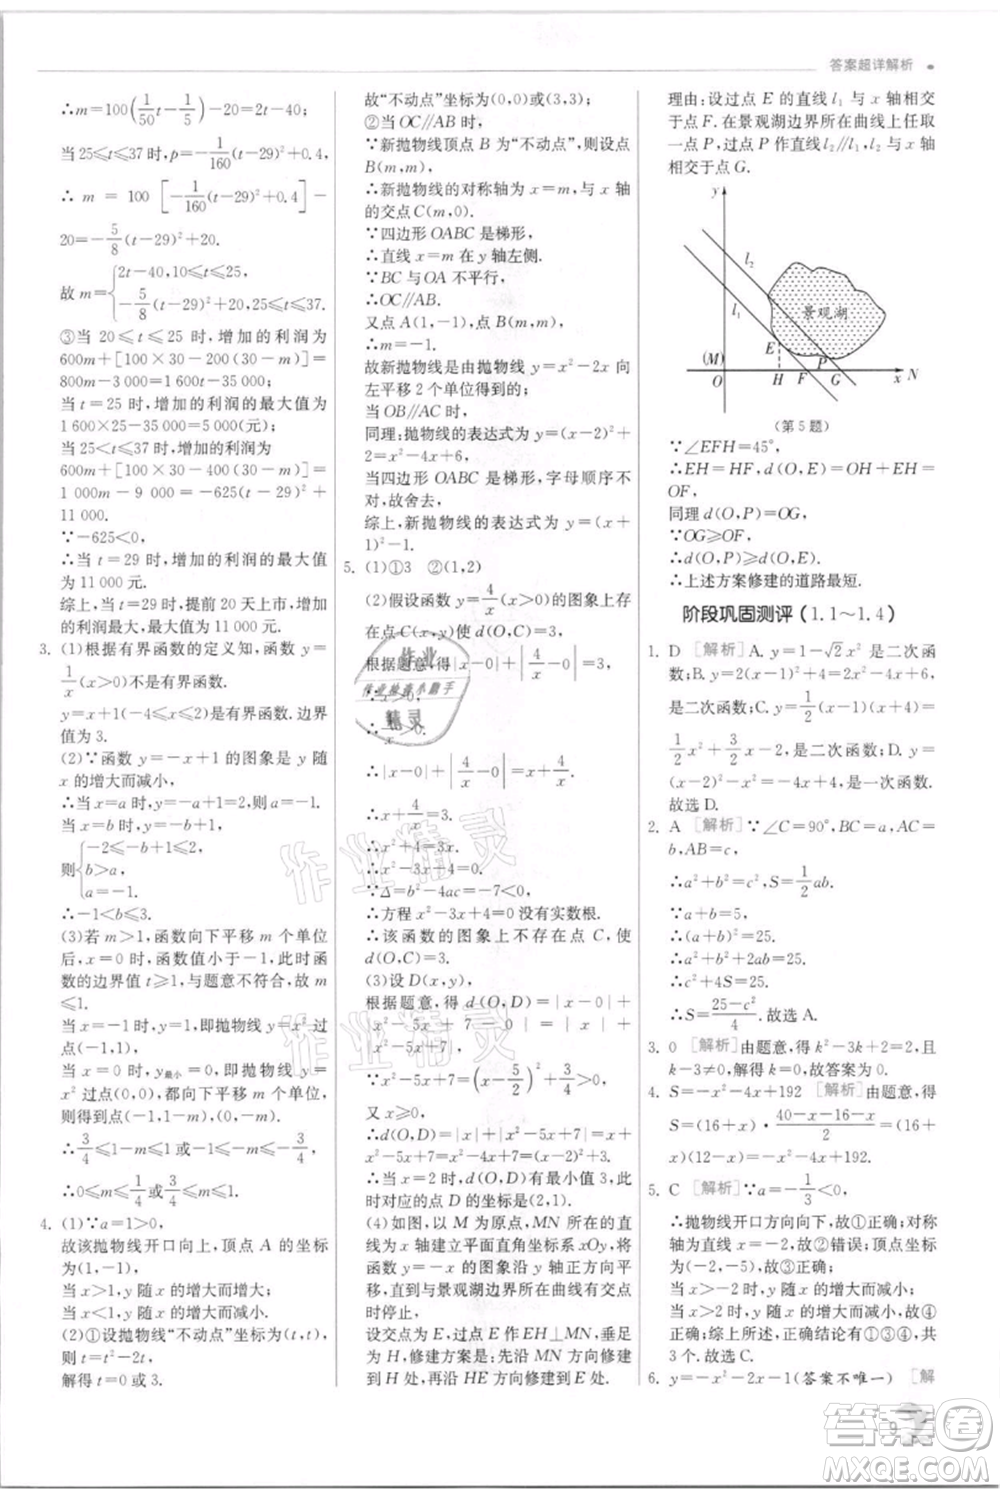 答案超详解析
∴m=100(1/50 t-1/5)-20=2t-40;
当 25≤t≤37 时,p=-1/160(t-29)²+0.4,
∴ m = 100 [-1/160(t-29)²+0.4]-
20=-5/8(t-29)²+20.
故 m={2t-40,10≤t≤25,
-5/8(t-29)²+20,25≤t≤37.
③当 20≤t≤25 时,增加的利润为
600m+[100×30-200(30-m)]=
800m-3 000=1 600t-35 000;
当 t=25 时,增加的利润的最大值为
1 600×25-35 000=5 000(元);
当 25<t≤37 时,增加的利润为
600m+[100×30-200(30-m)]=
800m-3 000=-625(t-29)²+
11 000.
∵-625<0,
∴当 t=29 时,增加的利润的最大值
为 11 000 元.
综上,当 t=29 时,提前 20 天上市,增
加的利润最大,最大值为 11 000 元.
3. (1)根据有界函数的定义知,函数 y=
1/x(x>0)不是有界函数.
y=x+1(-4≤x≤2)是有界函数.边界
值为 3.
(2)∵函数 y=-x+1 的图象是 y 随
x 的增大而减小,
∴当 x=a 时,y=-a+1=2,则 a=-1.
当 x=b 时,y=-b+1.
则{-2≤-b+1<2,
b>a,
a=-1.
∴-1<b≤3.
(3)若 m>1,函数向下平移 m 个单位
后,x=0 时,函数值小于-1,此时函
数的边界 t≥1,与题意不符合,故 m
≤1.
当 x=-1 时,y=1,即抛物线 y=x² 过
点(-1,1).
当 x=0 时,y最小=0,即抛物线 y=
x² 过点(0,0),都向下平移 m 个单位,
则得到点(-1,1-m),(0,-m).
∴3/4≤1-m≤1 或-1≤-m≤-3/4,
∴0≤m≤1/4 或 3/4≤m≤1.
4. (1)∵a=1>0,
故该抛物线开口向上,顶点 A 的坐标
为(1,-1).
当 x>1,y 随 x 的增大而增大;
当 x<1,y 随 x 的增大而减小.
(2)①设抛物线“不动点”坐标为(t,t),
则 t=t²-2t,
解得 t=0 或 3.
故“不动点”坐标为(0,0)或(3,3);
②当 OC∥AB 时,
∵新抛物线顶点 B 为“不动点”,则设点
B(m,m),
∴新抛物线的对称轴为 x=m,与 x 轴
的交点 C(m,0).
∵四边形 OABC 是梯形,
∴直线 x=m 在 y 轴左侧.
∵BC 与 OA 不平行,
∴OC∥AB.
又点 A(1,-1),点 B(m,m),
∴m=-1.
故新抛物线是由抛物线 y=x²-2x 向
左平移 2 个单位得到的;
当 OB∥AC 时,
同理:抛物线的表达式为 y=(x-2)²+
2=x²-4x+6.
当四边形 OABC 是梯形,字母顺序不
对,故舍去,
综上,新抛物线的表达式为 y=(x+
1)²-1.
5. (1)①3 ②(1,2)
(2)假设函数 y=4/x(x>0)的图象上存
在点 C(x,y),使 d(O,C)=3,
根据题意,得|x-0|+|4/x-0|=3,
∵x>0,
∴4/x>0.
∴|x-0|+|4/x-0|=x+4/x.
∴x+4/x=3.
∴x²+4=3x.
∴x²-3x+4=0.
∴Δ=b²-4ac=-7<0.
∴方程 x²-3x+4=0 没有实数根.
∴该函数的图象上不存在点 C,使
d(O,C)=3.
(3)设 D(x,y),
根据题意,得 d(O,D)=|x-0|+
|x²-5x+7-0|=|x|+
|x²-5x+7|,
∵x²-5x+7=(x-5/2)²+3/4>0,
又 x≥0,
∴d(O,D)=|x|+|x²-5x+7|=x+
x²-5x+7=x²-4x+7=(x-2)²+3.
∴当 x=2 时,d(O,D)有最小值 3,此
时对应的点 D 的坐标是(2,1).
(4)如图,以 M 为原点,MN 所在的直
线为 x 轴建立平面直角坐标系 xOy,将
函数 y=-x 的图象沿 y 轴正方向平
移,直到与景观湖边界所在曲线有交点
时停止.
设交点为 E,过点 E 作 EH⊥MN,垂足
为 H,修建方案是:先沿 MN 方向修建
到 H 处,再沿 HE 方向修建到 E 处.
理由:设过点 E 的直线 l₁ 与 x 轴相交
于点 F. 在景观湖边界所在曲线上任取
一点 P,过点 P 作直线 l₂∥l₁,l₂ 与 x 轴
相交于点 G.
y
l₂
l₁
景观湖
E
P
(M)
O
H
F
G
x
N
(第 5 题)
∵∠EFH=45°,
∴EH=HF,d(O,E)=OH+EH=
OF,
同理 d(O,P)=OG,
∵OG≥OF,
∴d(O,P)≥d(O,E).
∴上述方案修建的道路最短.
阶段巩固测评(1.1~1.4)
1. D [解析] A. y=1-√2x² 是二次函
数;B. y=2(x-1)²+4=2x²-4x+6,
是二次函数;C. y=1/2(x-1)(x+4)=
1/2x²+3/2x-2,是二次函数;D. y=
(x-2)²-x²=-4x+4,是一次函数.
故选 D.
2. A [解析] ∵∠C=90°,BC=a,AC=
b,AB=c,
∴a²+b²=c²,S=1/2ab.
∵a+b=5,
∴(a+b)²=25.
∴c²+4S=25.
∴S=(25-c²)/4. 故选 A.
3. 0 [解析] 由题意,得 k²-3k+2=2,
k-3≠0,解得 k=0.
4. S=-x²-4x+192 [解析] 由题意,得
S=(16+x)·(40-16-x-x)/2=(16+
x)(12-x)=-x²-4x+192.
5. C [解析] ∵a=-1/3<0,
∴抛物线开口向下,故①正确;对称
轴为直线 x=-2,故②错误;顶点坐标
为(-2,-5),故③正确;
∵当 x>-2 时,y 随 x 的增大而减小,
∴当 x>2 时,y 随 x 的增大而减小,故④
正确;综上所述,正确结论有①③④,共
3 个.故选 C.
6. y=-x²-2x-1(答案不唯一) [解
9
作业
作业检查小助手
精灵
作业精灵
作业精灵
答案圈
MXQE.COM